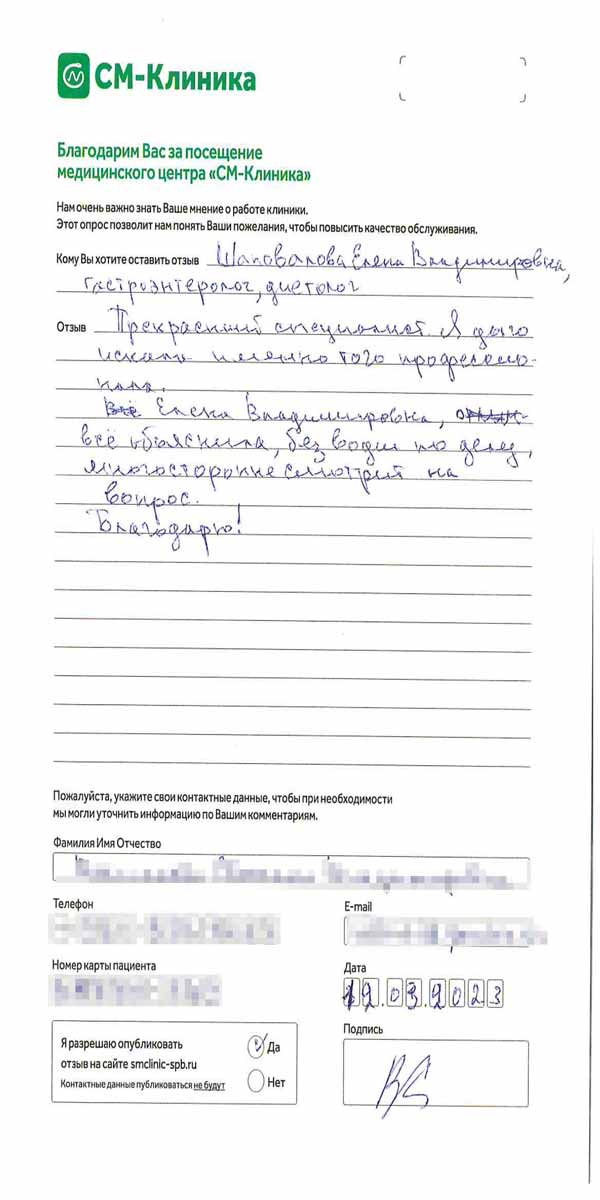 СМ-Клиника
Благодарим Вас за посещение
медицинского центра «СМ-Клиника»
Нам очень важно знать Ваше мнение о работе клиники.
Этот опрос позволит нам понять Ваши пожелания, чтобы повысить качество обслуживания.
Кому Вы хотите оставить отзыв Шаповалова Елена Владимировна,
гастроэнтеролог, диетолог
Отзыв Прекрасный специалист. Я долго
искала именно того професcио-
нала.
Всё Елена Владимировна,
всё объяснила, без воды по делу,
многосторонне смотрит на
вопрос.
Благодарю!
Пожалуйста, укажите свои контактные данные, чтобы при необходимости
мы могли уточнить информацию по Вашим комментариям.
Фамилия Имя Отчество
Телефон
E-mail
Номер карты пациента
Дата
12.03.2023
Я разрешаю опубликовать
отзыв на сайте smclinic-spb.ru
Контактные данные публиковаться не будут
Да
Нет
Подпись